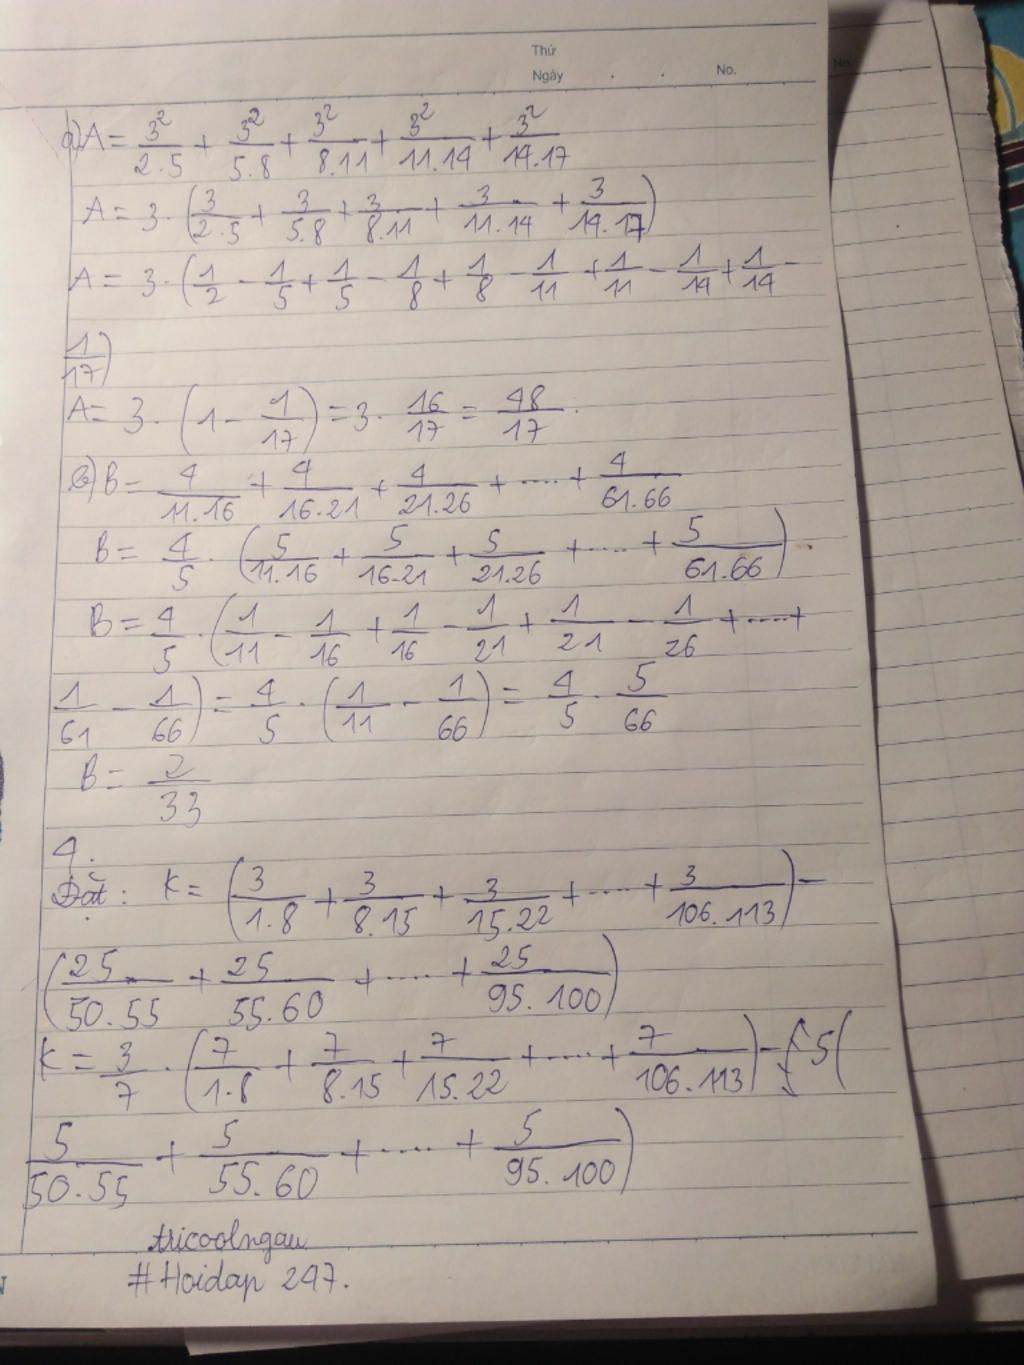 Thứ
Ngày . . No.
No.
a) A = 3²/2.5 + 3²/5.8 + 3²/8.11 + 3²/11.14 + 3²/14.17
A = 3 . (3/2.5 + 3/5.8 + 3/8.11 + 3/11.14 + 3/14.17)
A = 3 . (1/2 - 1/5 + 1/5 - 1/8 + 1/8 - 1/11 + 1/11 - 1/14 + 1/14 -
1/17)
A = 3 . (1 - 1/17) = 3 . 16/17 = 48/17 .
b) B = 4/11.16 + 4/16.21 + 4/21.26 + .... + 4/61.66
B = 4/5 . (5/11.16 + 5/16.21 + 5/21.26 + .... + 5/61.66)
B = 4/5 . (1/11 - 1/16 + 1/16 - 1/21 + 1/21 - 1/26 + .... +
1/61 - 1/66) = 4/5 . (1/11 - 1/66) = 4/5 . 5/66
B = 2/33
4.
Đặt : K = (3/1.8 + 3/8.15 + 3/15.22 + .... + 3/106.113) -
(25/50.55 + 25/55.60 + .... + 25/95.100)
K = 3/7 . (7/1.8 + 7/8.15 + 7/15.22 + .... + 7/106.113) - 5(
5/50.55 + 5/55.60 + .... + 5/95.100)
tricoolngau
#Hoidap 247.